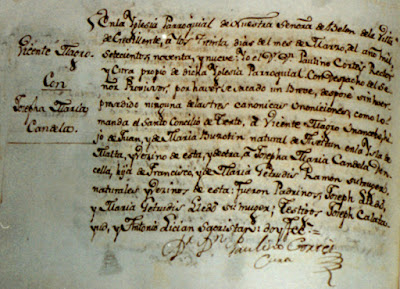 Vicente Magro
Con
Josepha Maria
Candela
En la Yglesia Parroquial de Nuestra Señora de Belen de la Villa
de Crevillente, a los treinta dias del mes de Marzo, del año mil
Setecientos, noventa, y nueve: Yo el Dr. Dn. Paulino Cortés Rector
y Cura propio de dicha Yglesia Parroquial, Con despacho del Se-
ñor Provisor, por haverse sacado un Breve, despose sin haver
precedido ninguna de las tres canonicas moniciones, como lo
manda el Santo Concilio de Trento, a Vicente Magro Mancebo, hi-
jo de Juan, y de Maria natural de en la Ysla de
Malta, y vecino de esta; y de otra, a Josepha Maria Candela Don-
cella, hija de Francisco, y de Maria Getrudis Ramon su muger,
naturales y vecinos de esta: fueron Padrinos, Joseph Lledó,
y Maria Getrudis Lledó su muger; testigos Joseph Calata-
yud, y Antonio Lician Sacristan: doy fee=
Dr. Dn. Paulino Cortés
Cura